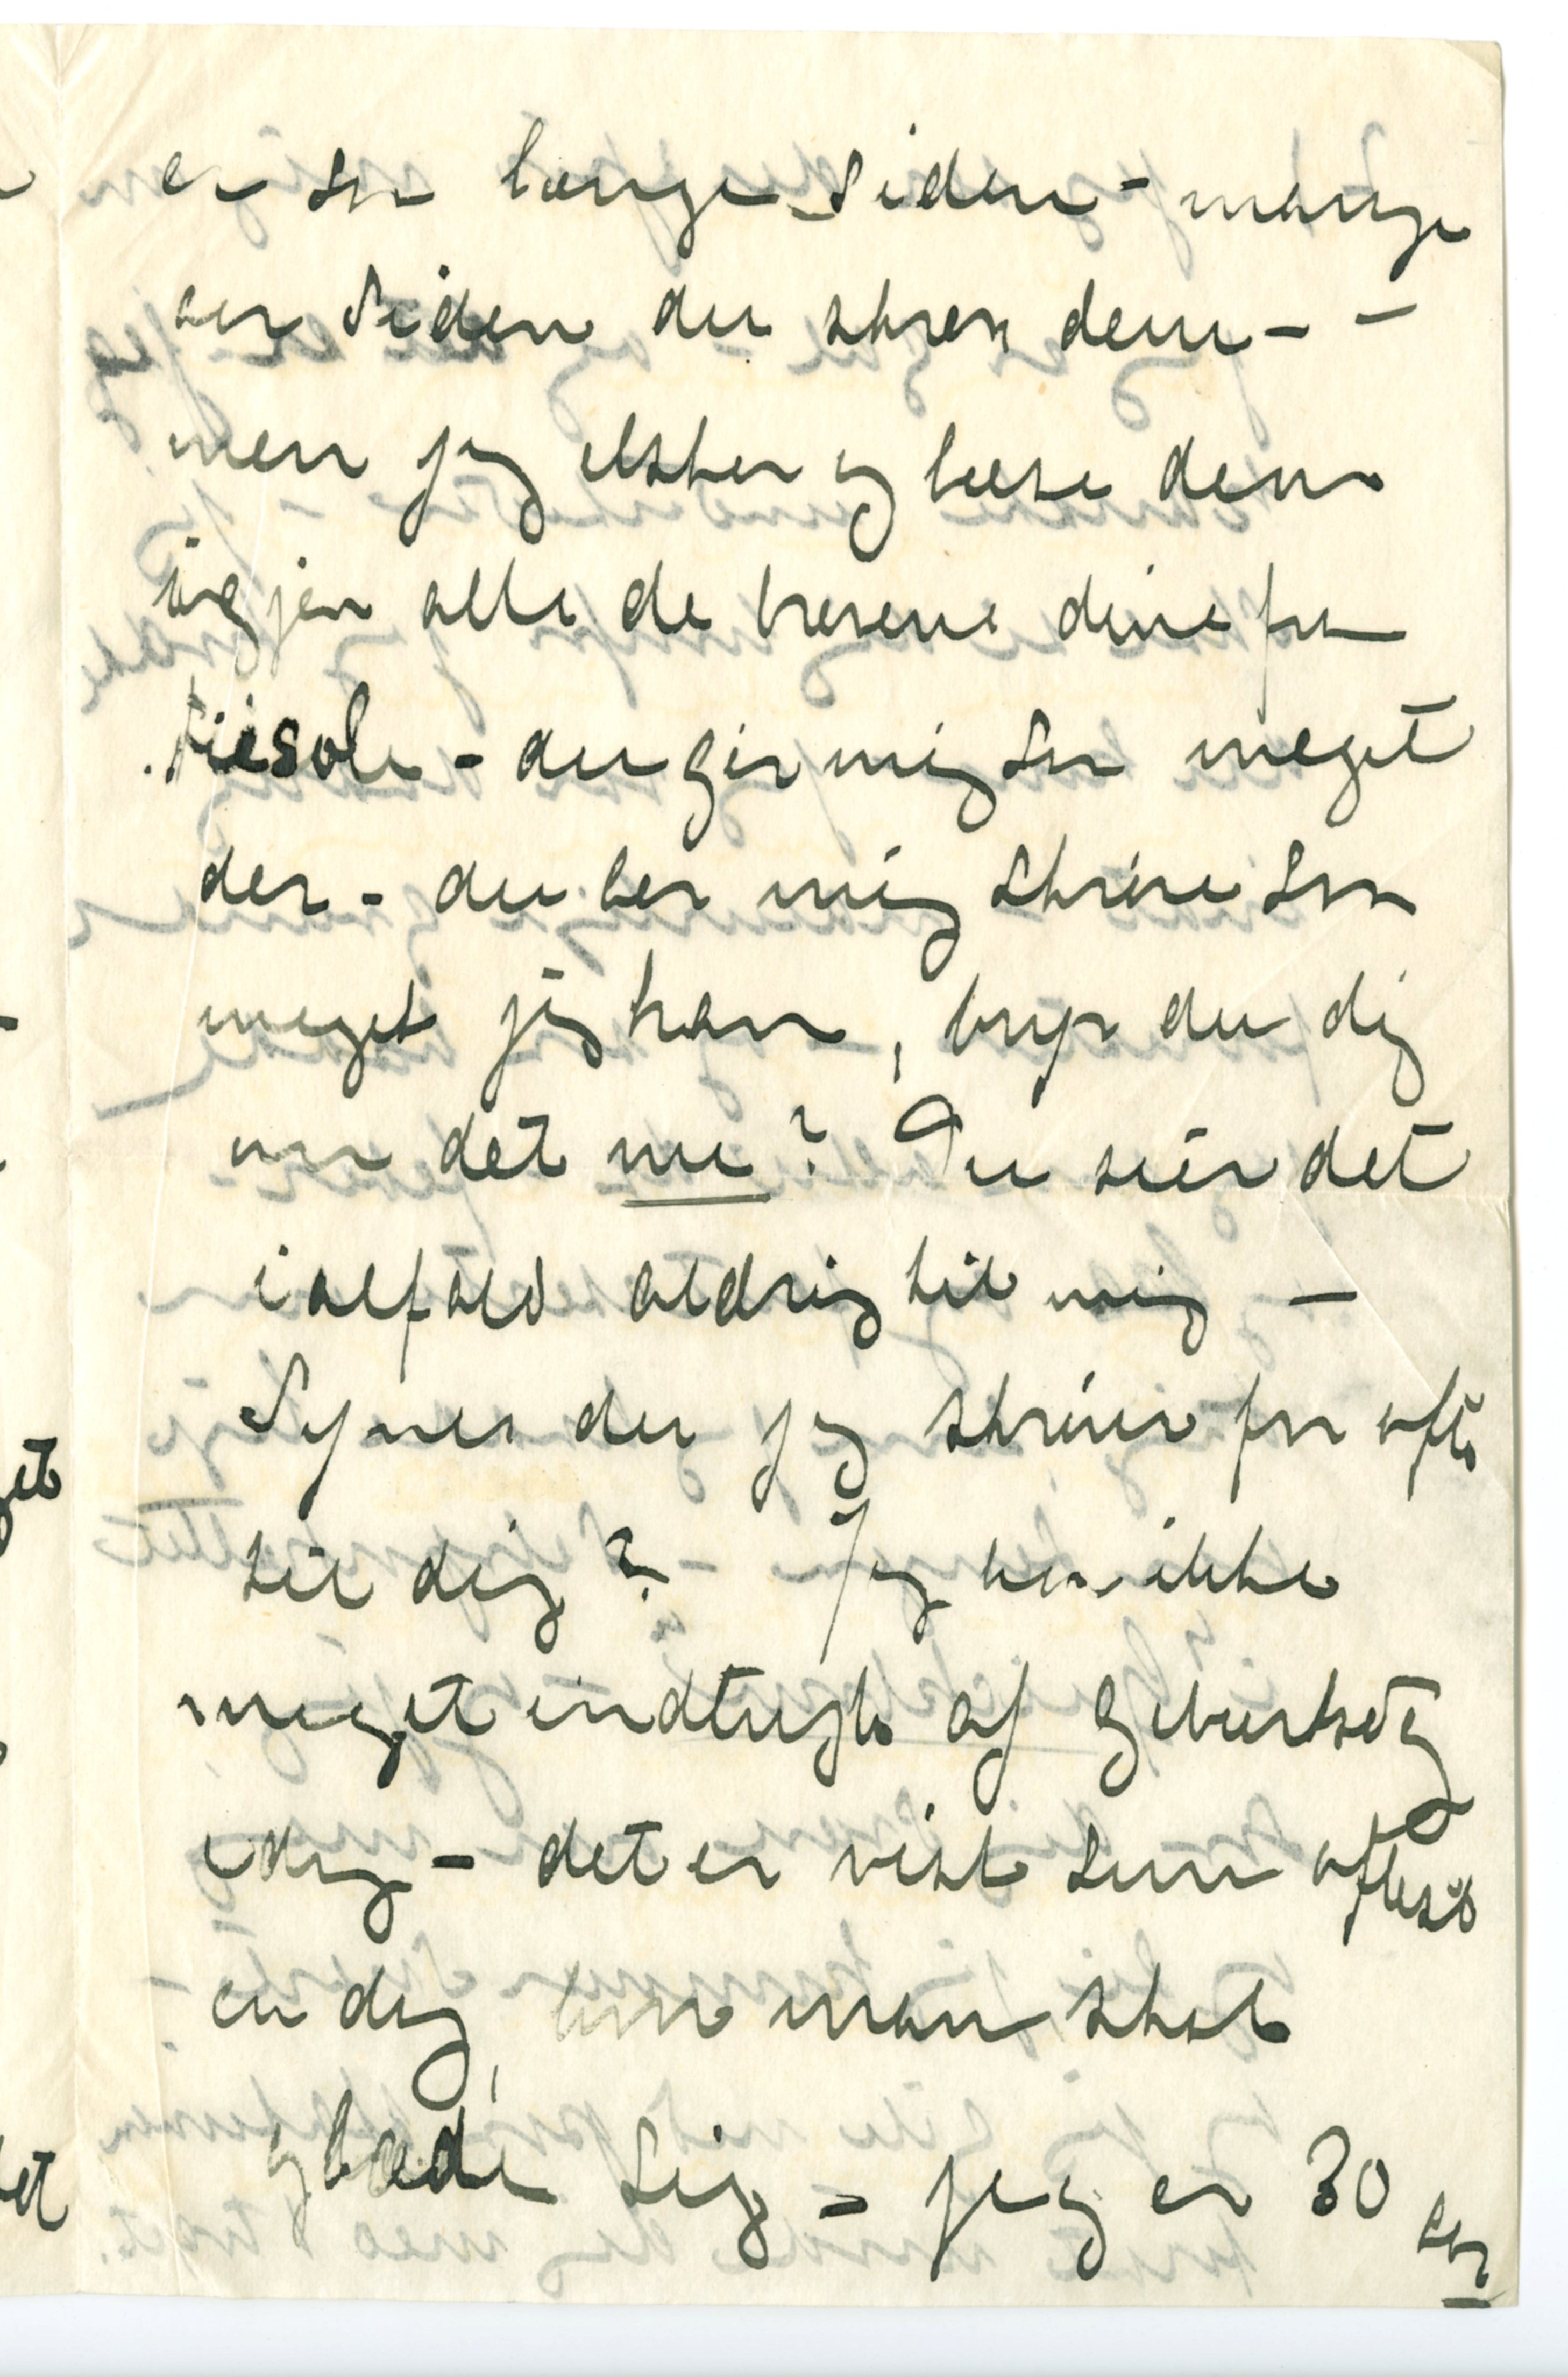 er saa længe siden – mange
aar siden du skrev dem – –
men jeg elsker og læse dem
igjen alle de brevene dine fra
Fiesole – du gir mig saa meget
der – du ber mig skrive saa
meget jeg kan, bryr du dig
om det nu? Du siér det
ialfald aldrig til mig –
Synes du jeg skriver for ofte
til dig? Jeg har ikke
meget indtryk af Geburtsdag
idag – det er vist som oftest
en dag, man skal
glæde sig – jeg er 30 aar